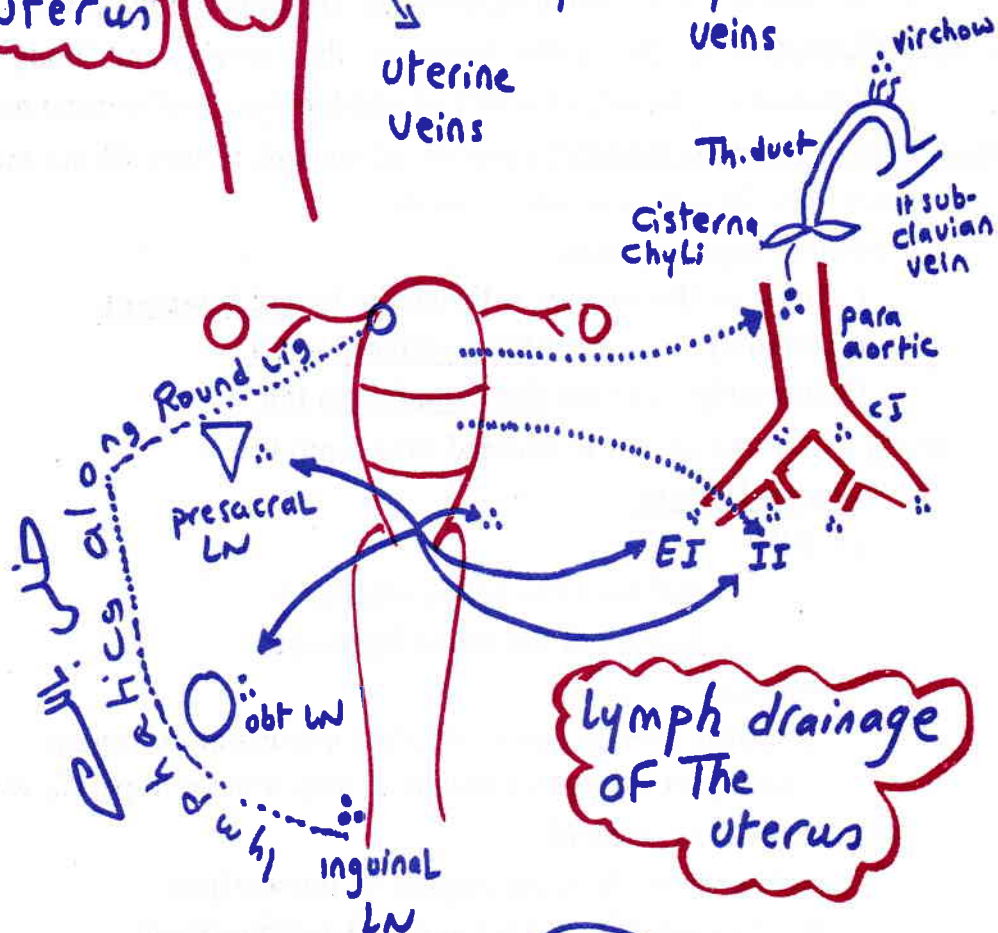 uterus
uterine
veins
veins
virchow
Th.duct
Cisterna
chyli
lt sub-
clavian
vein
para
aortic
CI
EI
II
lymphatics along Round Lig
presacral
LN
obt LN
inguinal
LN
Lymph drainage
of The
uterus